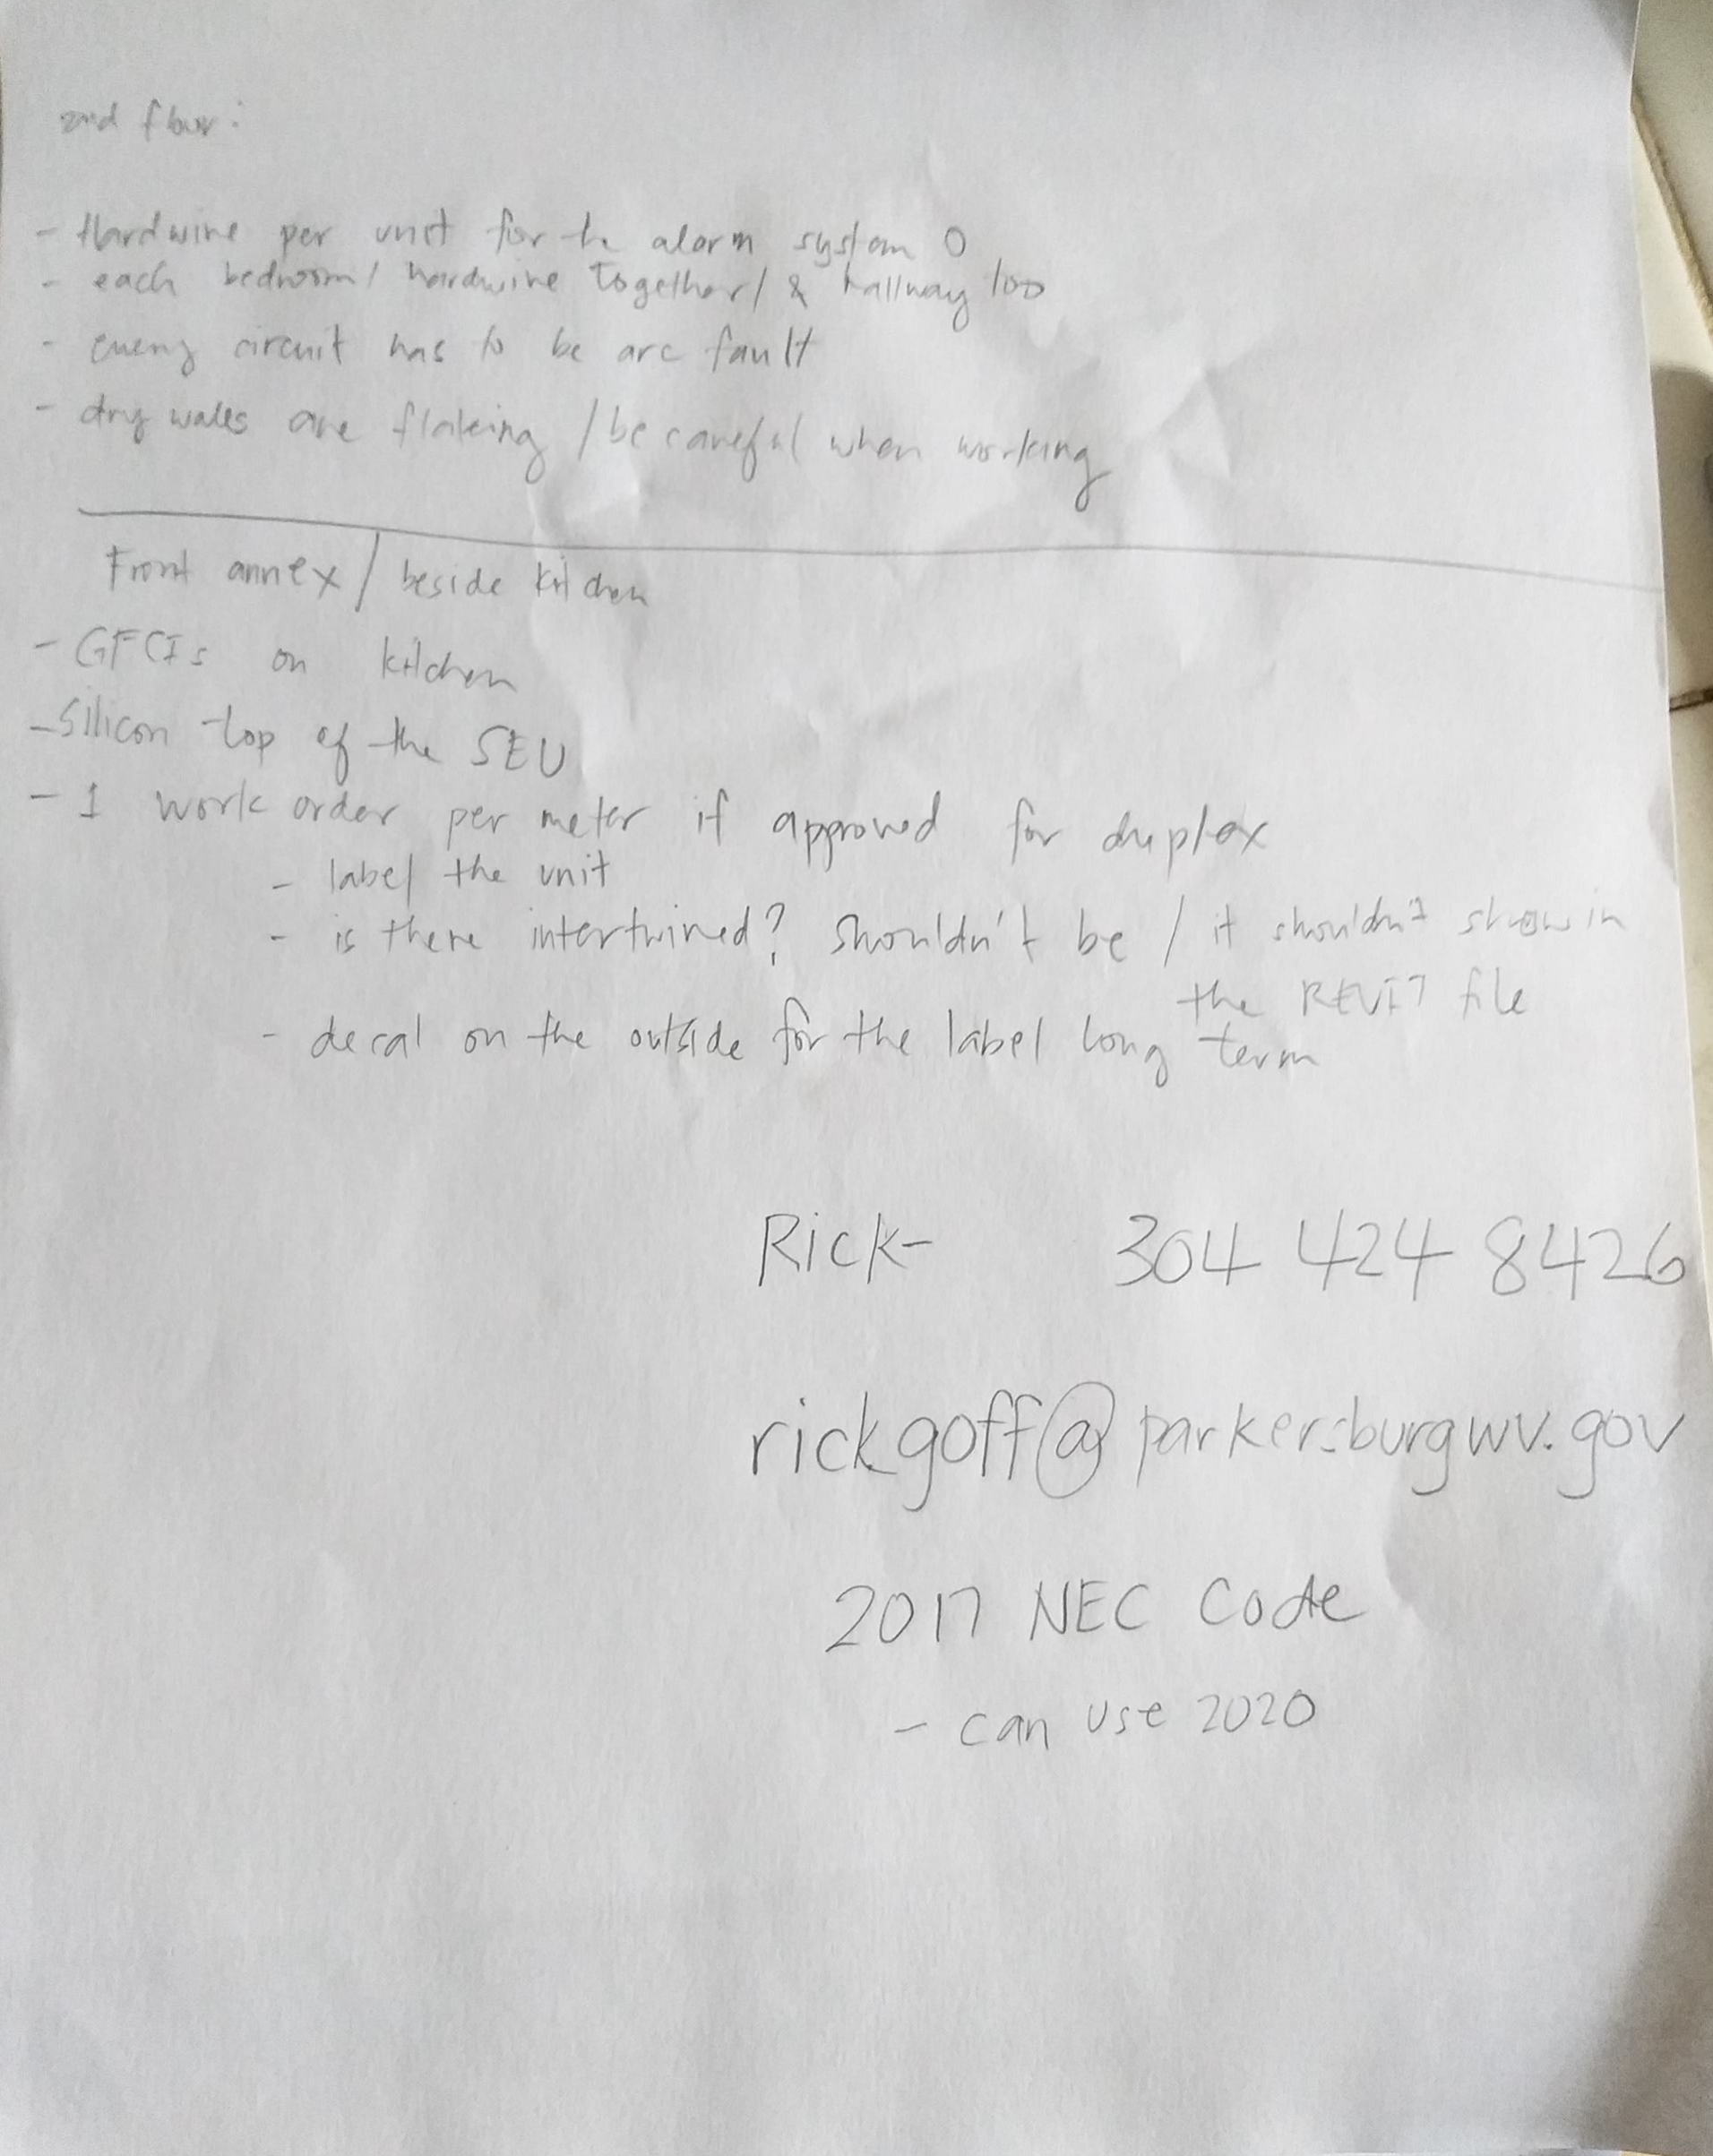 2nd floor:
- Hardwire per unit for the alarm system O
- each bedroom / hardwire together / & hallway too
- every circuit has to be arc fault
- dry walls are flaking / be careful when working
Front annex / beside kitchen
- GFCIs on kitchen
- Silicon top of the SEU
- 1 work order per meter if approved for duplex
- label the unit
- is there intertwined? shouldn't be / it shouldn't show in
the REVIT file
- decal on the outside for the label long term
Rick- 304 424 8426
rickgoff@parkersburgwv.gov
2017 NEC Code
- can use 2020